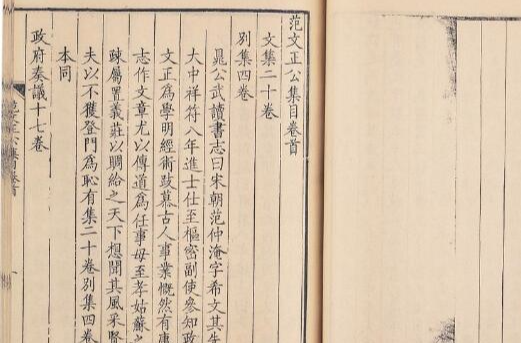 范文正公集目卷首
文集二十卷
別集四卷
晁公武讀書志曰宋朝范仲淹字希文其先
大中祥符八年進士仕至樞密副使參知政
文正爲學明經術跂慕古人事業慨然有康
志作文章尤以傳道爲任事母至孝姑蘇之
疎屬置義莊以賙給之天下想聞其風采賢
夫以不獲登門爲恥有集二十卷別集四卷
本同
政府奏議十七卷